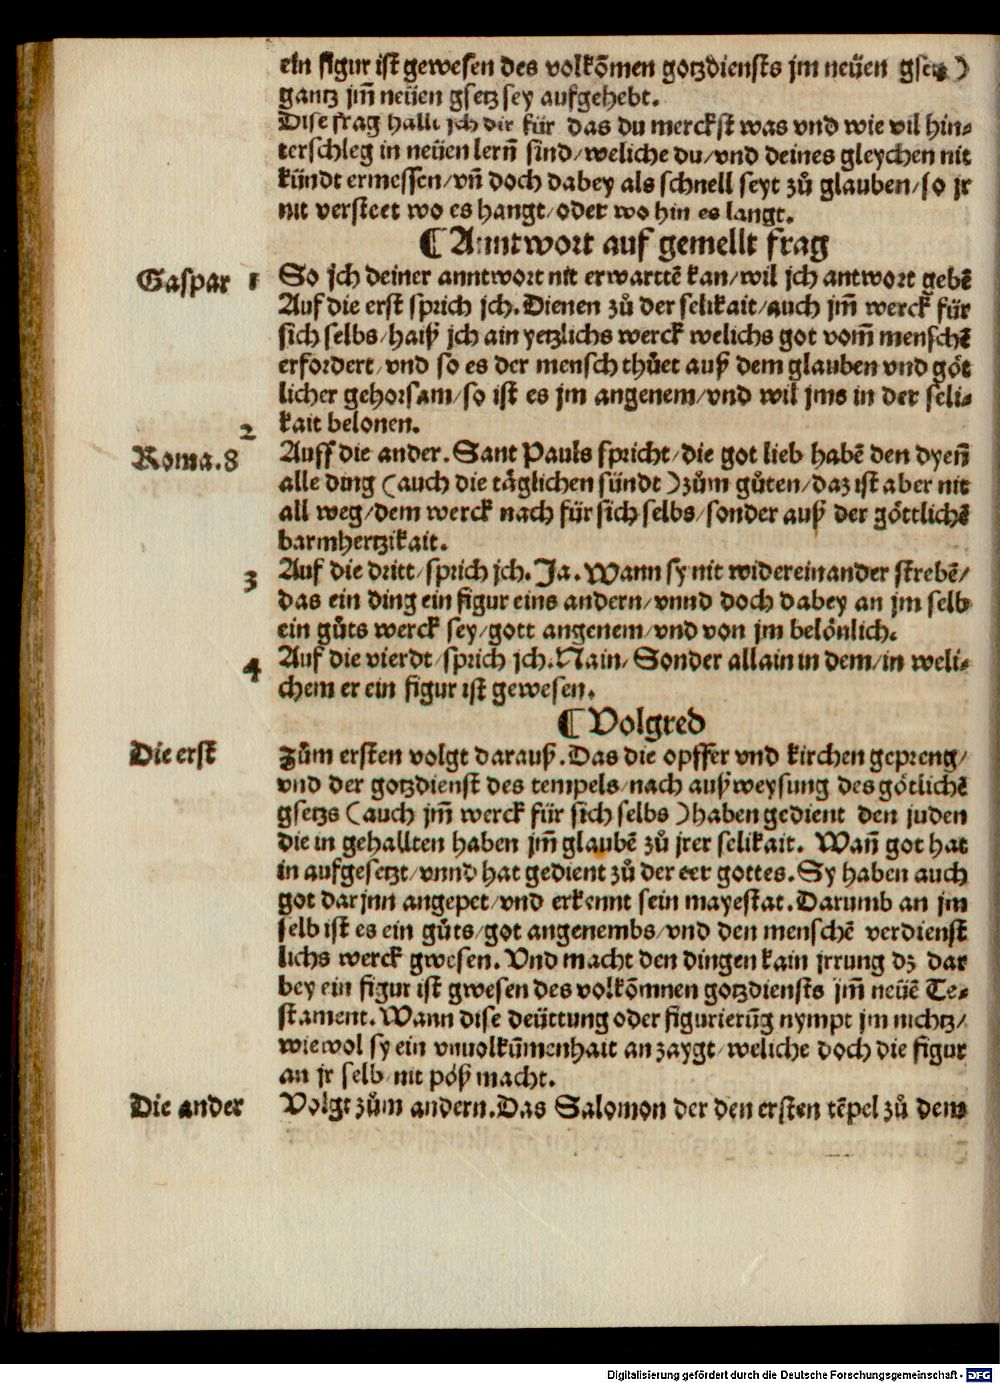 ein figur ist gewesen des volkõmen gotzdiensts jm neüen gsetz)
gantz jm̃ neüen gsetz sey aufgehebt.
Dise frag hallt jch dir für das du merckst was vnd wie vil hin⸗
terschleg in neüen lern̄ sind/weliche du/vnd deines gleychen nit
kündt ermessen/vñ doch dabey als schnell seyt zů glauben/so jr
nit versteet wo es hangt/oder wo hin es langt.
¶ Anntwort auf gemellt frag
Gaspar 1 So jch deiner anntwort nit erwarttẽ kan/wil jch antwort gebẽ
Auf die erst sprich jch. Dienen zů der selikait/auch jm̃ werck für
sich selbs/haiß jch ain yetzlichs werck welichs got vom̃ menschẽ
erfordert/vnd so es der mensch thůet auß dem glauben vnd göt
licher gehorsam/so ist es jm angenem/vnd wil jms in der seli⸗
kait belonen.
2 Roma.8 Auff die ander. Sant Pauls spricht/die got lieb habẽ den dyen̄
alle ding (auch die täglichen sündt) zům gůten/daz ist aber nit
all weg/dem werck nach für sich selbs/sonder auß der göttlichẽ
barmhertzikait.
3 Auf die dritt/sprich jch. Ja. Wann sy nit widereinander strebẽ/
das ein ding ein figur eins andern/vnnd doch dabey an jm selb
ein gůts werck sey/gott angenem/vnd von jm belönlich.
4 Auf die vierdt/sprich jch. Nain/Sonder allain in dem/in weli⸗
chem er ein figur ist gewesen.
¶ Volgred
Die erst Zům ersten volgt darauß. Das die opffer vnd kirchen gepreng/
vnd der gotzdienst des tempels/nach außweysung des götlichẽ
gsetzs (auch jm̃ werck für sich selbs) haben gedient den juden
die in gehallten haben jm̃ glaubẽ zů jrer selikait. Wañ got hat
in aufgesetzt/vnnd hat gedient zů der eer gottes. Sy haben auch
got darjnn angepet/vnd erkennt sein mayestat. Darumb an jm
selb ist es ein gůts/got angenembs/vnd den menschẽ verdienst
lichs werck gwesen. Vnd macht den dingen kain jrrung dz dar
bey ein figur ist gwesen des volkõmnen gotzdiensts jm̃ neüẽ Te⸗
stament. Wann dise deüttung oder figurierũg nympt jm nichtz/
wiewol sy ein vnuolkũmenhait anzaygt/weliche doch die figur
an jr selb nit pöß macht.
Die ander Volgt zům andern. Das Salomon der den ersten tẽpel zů dem
Digitalisierung gefördert durch die Deutsche Forschungsgemeinschaft - DFG